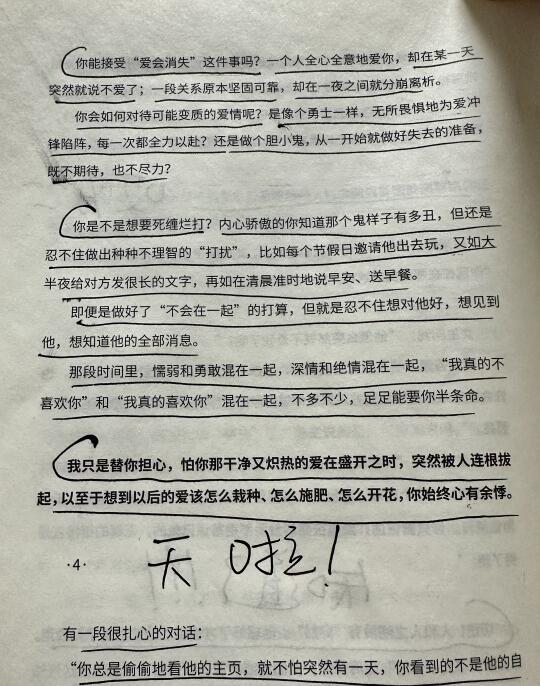 你能接受“爱会消失”这件事吗？一个人全心全意地爱你，却在某一天
突然就说不爱了；一段关系原本坚固可靠，却在一夜之间就分崩离析。
你会如何对待可能变质的爱情呢？是像个勇士一样，无所畏惧地为爱冲
锋陷阵，每一次都全力以赴？还是做个胆小鬼，从一开始就做好失去的准备，
既不期待，也不尽力？
你是不是想要死缠烂打？内心骄傲的你知道那个鬼样子有多丑，但还是
忍不住做出种种不理智的“打扰”，比如每个节假日邀请他出去玩，又如大
半夜给对方发很长的文字，再如在清晨准时地说早安、送早餐。
即便是做好了“不会在一起”的打算，但就是忍不住想对他好，想见到
他，想知道他的全部消息。
那段时间里，懦弱和勇敢混在一起，深情和绝情混在一起，“我真的不
喜欢你”和“我真的喜欢你”混在一起，不多不少，足足能要你半条命。
我只是替你担心，怕你那干净又炽热的爱在盛开之时，突然被人连根拔
起，以至于想到以后的爱该怎么栽种、怎么施肥、怎么开花，你始终心有余悸。
·4·
天啦！
有一段很扎心的对话：
“你总是偷偷地看他的主页，就不怕突然有一天，你看到的不是他的自